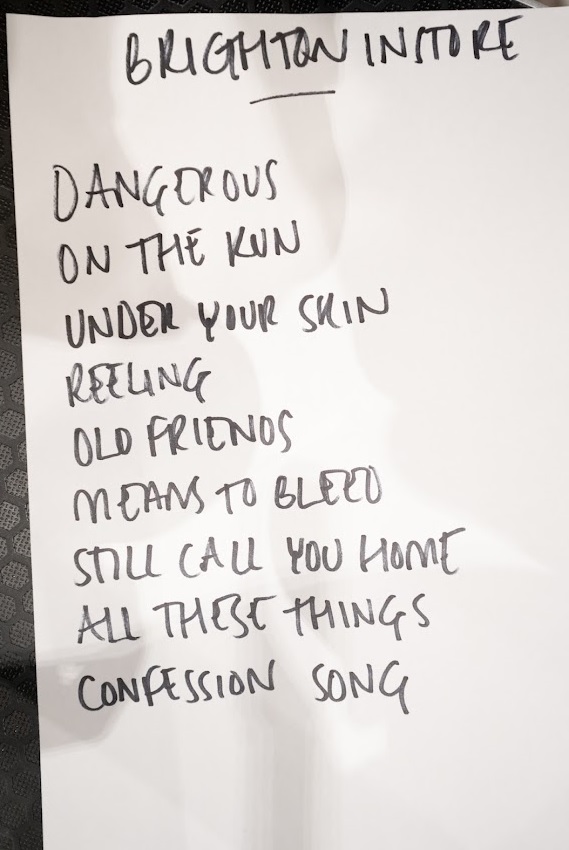 BRIGHTON INSTORE
DANGEROUS
ON THE RUN
UNDER YOUR SKIN
REELING
OLD FRIENDS
MEANS TO BLEED
STILL CALL YOU HOME
ALL THESE THINGS
CONFESSION SONG